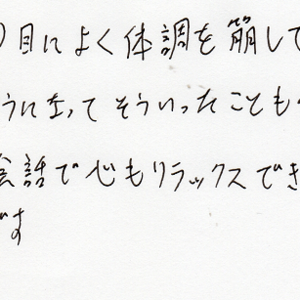 り目によく体調を崩して
うになってそういったことも
会話で心もリラックスでき
です